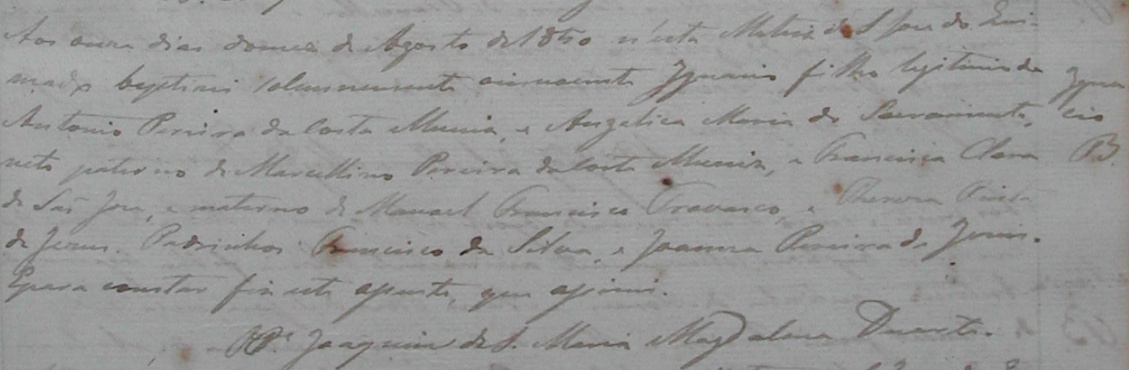 Aos onze dias do mez de Agosto de 1860 n'esta Matriz de S. Jose do Gui-
maraẽs baptisei solemnemente oinnocente Ignacio filho legitimo de
Antonio Pereira da Costa Muniz, e Angelica Maria do Sacramento,
neto paterno de Marcellino Pereira da Costa Muniz, e Francisca Clara
de São Jose, e materno de Manoel Francisco Travasco, e Thereza
de Jesus. Padrinhos Francisco da Silva, e Joanna Pereira de Jesus.
Epara constar fiz este apunte, que asignei.
Pe. Joaquim de S. Maria Magdalena Duarte.
Igna
cio
B.